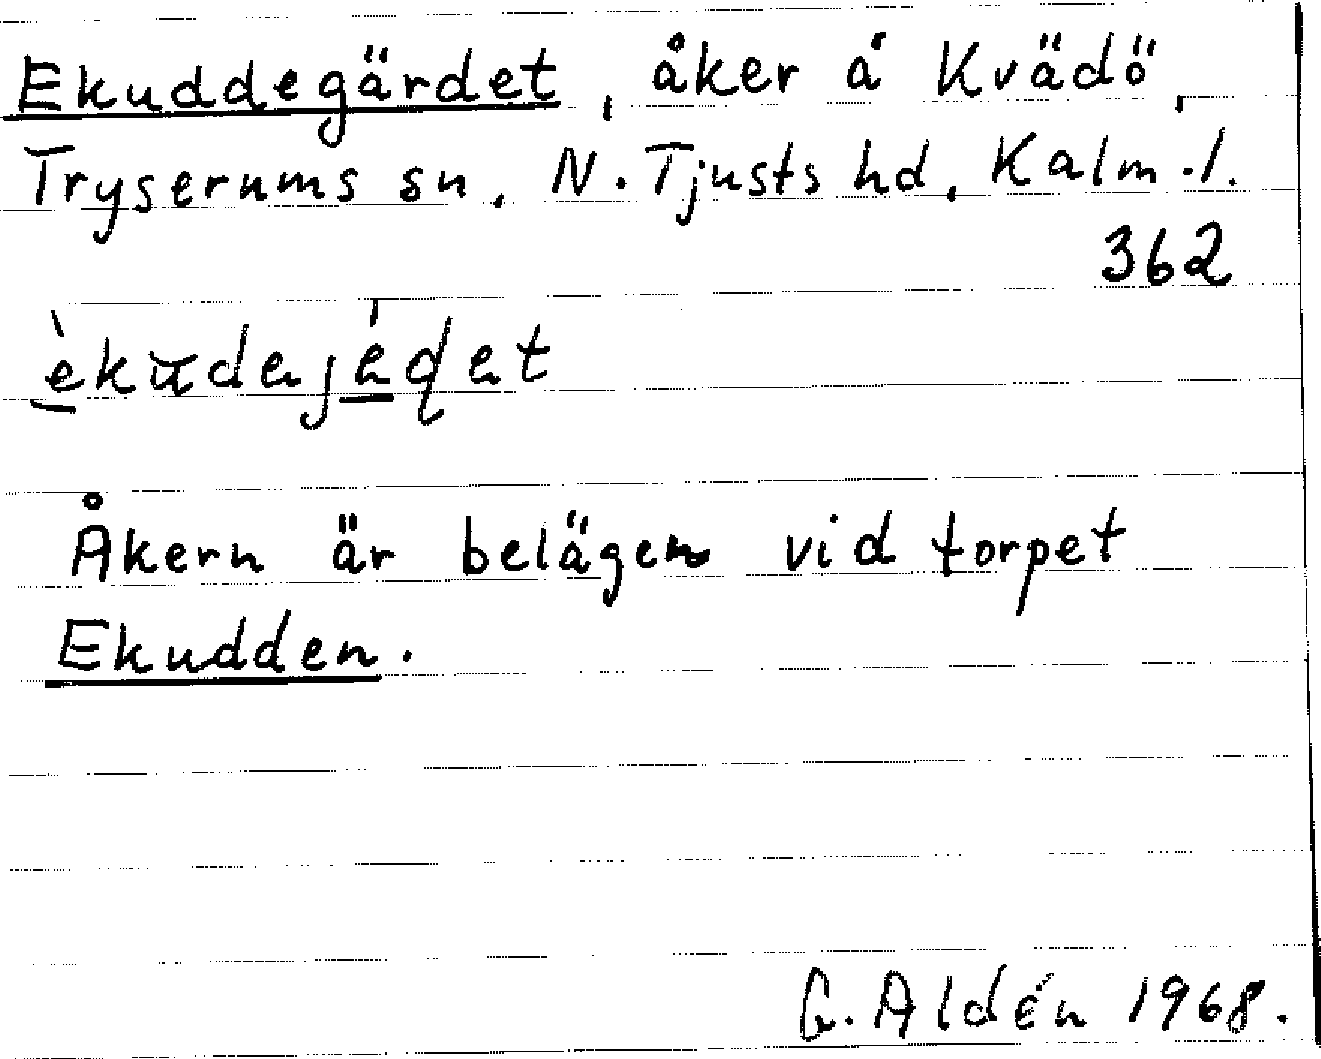 Ekuddegärdet, åker å Kvädö,
Tryserums sn, N. Tjusts hd, Kalm. l.
362
Åkern är belägen vid torpet
Ekudden.
G. Aldén 1968.